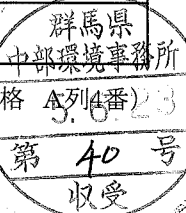 群馬県
中部環境事務所
格 A列4番)
5.6.23
第 40 号
収受